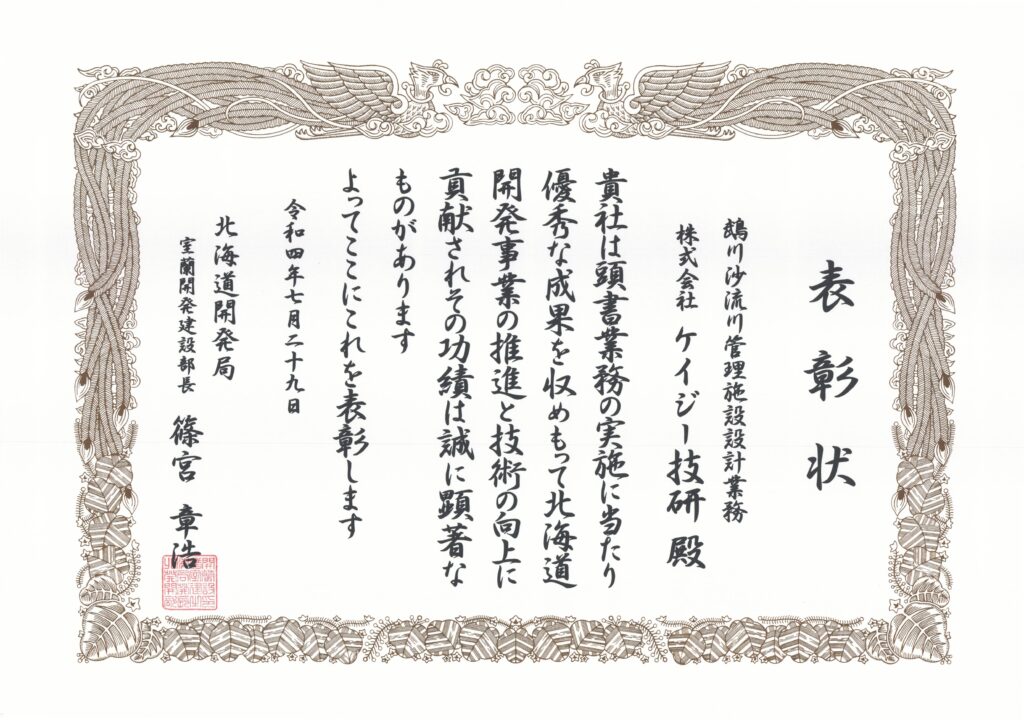 表彰状
鵡川沙流川管理施設設計業務
株式会社 ケイジー技研 殿
貴社は頭書業務の実施に当たり
優秀な成果を収めもって北海道
開発事業の推進と技術の向上に
貢献されその功績は誠に顕著な
ものがあります
よってここにこれを表彰します
令和四年七月二十九日
北海道開発局
室蘭開発建設部長 篠宮 章浩